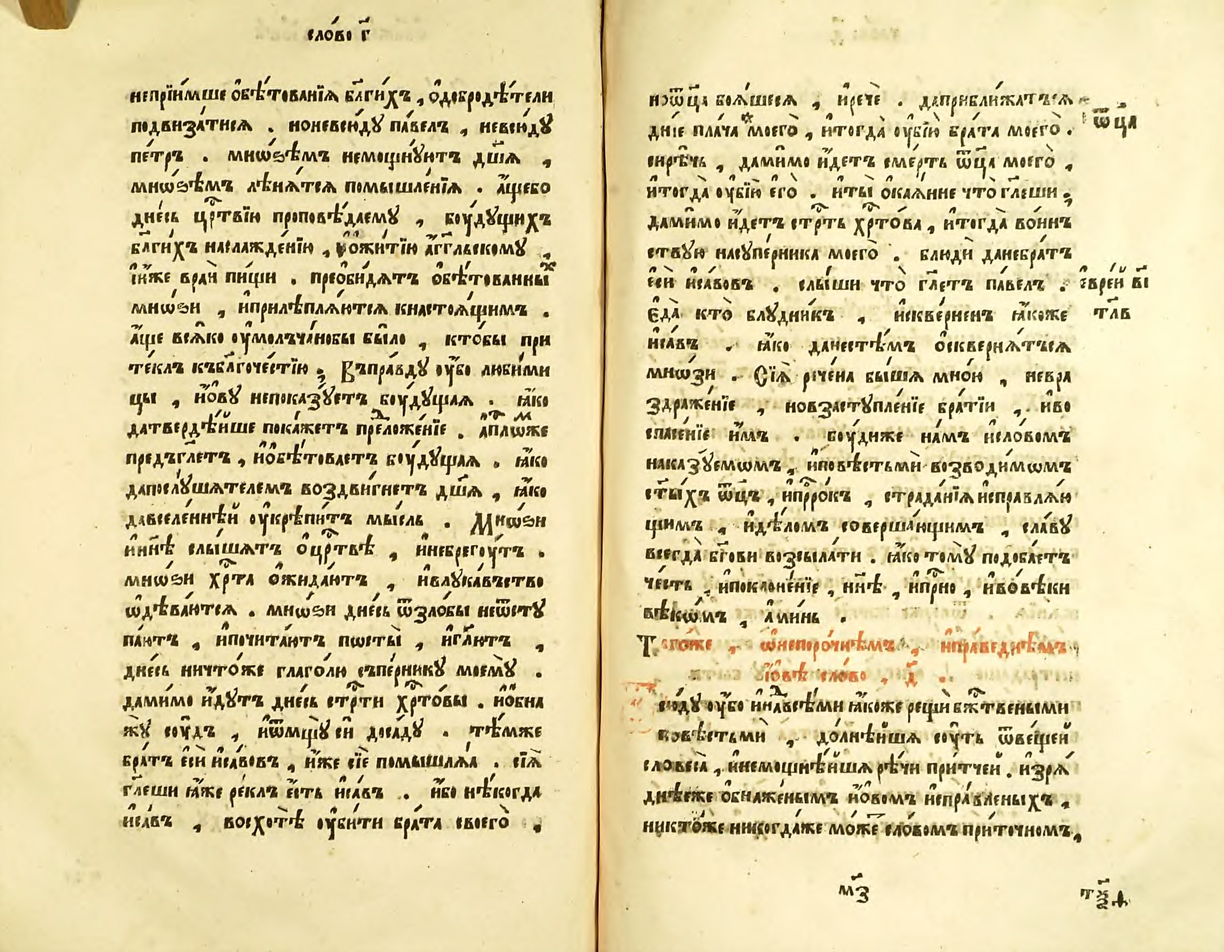 сло́во г҃
непрїи́мше ѡ҆бѣтова́нїѧ бл҃ги́хъ , ѡ҆добродѣ́тели
подвиза́тисѧ . ноневсю́дꙋ па́велъ , невсю́дꙋ
пе́тръ . мно́ѕѣмъ немощнꙋютъ дш҃ѧ ,
мно́ѕѣмъ лѣнѧ́тсѧ помышле́нїѧ . а҆́щебо
дне́сь црⷭ҇твїю проповѣ́даемꙋ , бꙋ́дꙋщихъ
бл҃ги́хъ наслажде́нїю , ѡ҆житїю̀ а҆́гг҃льскомꙋ ,
и҆́же врай пи́щи . преѡби́дѧтъ ѡ҆бѣтова́нныⷯ
мно́ѕи , и҆прилѣплѧ́ютсѧ кнастоѧ́щимъ .
а҆́ще всѧ́ко ѹ҆молча́нобы бы́ло , кто́бы при
те́клъ къбл҃гоче́стїю ; Въпра́вдꙋ ѹ҆́бо люби́ми
цы , и҆́ѡвꙋ непока́зꙋетъ бꙋ́дꙋщаѧ . ꙗ҆́ко
датвердѣ́йше пока́жетъ преложе́нїе . а҆пⷭ҇лѡмже
предъгл҃етъ , и҆ѡ҆бѣтова́етъ бꙋ́дꙋщаѧ . ꙗ҆́ко
дапослꙋ́шателемъ воздви́гнетъ дш҃ѧ , ꙗ҆́ко
давселе́ннѣй ѹ҆крѣпи́тъ мы́сль . Мно́ѕи
и҆нн҃ѣ слы́шатъ ѡ҆црⷭ҇твѣ , и҆небрегꙋ́тъ .
мно́ѕи хрⷭ҇та ѡ҆жида́ютъ , и҆влꙋка́въство
ѡ҆дѣва́ютсѧ . мно́ѕи дне́сь ѿзло́бы неѿстꙋ
па́ютъ , и҆почита́ютъ посты̀ , и҆гл҃ютъ ,
дне́сь ничто́же глаго́лю сꙋпе́рникꙋ моемꙋ̀ .
дами́мо и҆́дꙋтъ дне́сь стрⷭ҇ти хрⷭ҇то́вы . и҆ѡ҆бна
жꙋ̀ сꙋ́дъ , и҆ѿмщꙋ̀ си доса́дꙋ . тѣ́мже
бра́тъ є҆сѝ и҆са́вовъ , и҆́же сїѐ помышлѧ́ѧ . сїѧ̀
гл҃еши ꙗ҆́же ре́клъ є҆́сть и҆са́въ . и҆́бо нѣ́когда
и҆са́въ , восхотѣ̀ ѹ҆би́ти бра́та своего̀ ,
ноѿц҃а боѧ́шесѧ , и҆речѐ . даприближа́тъсѧ
ѿц҃а
дні́е пла́ча моего̀ , и҆тогда̀ ѹ҆бїю̀ бра́та моего̀ .
си́рѣчь , дами́мо и҆́детъ сме́рть ѿц҃а моего̀ ,
и҆тогда̀ ѹ҆бїю̀ є҆го̀ . и҆ты̀ ѡ҆каѧ́нне что̀ гл҃еши ;
дами́мо и҆́детъ стрⷭ҇ть хрⷭ҇то́ва , и҆тогда̀ во́инъ
ствꙋю насꙋпе́рника моего̀ . блюдѝ дане́братъ
є҆сѝ и҆са́вовъ . слы́ши что̀ гл҃етъ па́велъ .
є҆вре́й в҃і
Є҆да̀ кто̀ блꙋ́дникъ , и҆скве́рненъ ꙗ҆́коже
гл҃в
и҆са́въ . ꙗ҆́ко дане́стѣмъ ѡ҆сквернѧ́тъсѧ
мно́зи . Сїѧ̀ рече́на бы́шѧ мно́ю , невра
здраже́нїе , новзастꙋпле́нїе бра́тїи , и҆во
спасе́нїе и҆̀мъ . бꙋ́диже на́мъ и҆сло́вомъ
наказꙋ́емѡмъ , и҆по́вѣстьми возводи́мѡмъ
ст҃ы́хъ ѿц҃ъ , и҆прⷪ҇ро́къ , страда́нїѧ и҆справлѧ́ю
щимъ , и҆дѣ́ломъ соверша́ющимъ , сла́вꙋ
всегда̀ бг҃ови возсыла́ти . ꙗ҆́ко томꙋ̀ подоба́етъ
че́сть , и҆поклоне́нїе , нн҃ѣ , и҆при́сно , и҆во́вѣки
вѣкѡ́мъ , а҆ми́нь .
Того́же , ѡ҆непоро́чнѣмъ , и҆пра́веднѣмъ
і҆́ѡвѣ сло́во , д҃ .
сю́дꙋ ѹ҆́бо и҆надвсѣ́ми ꙗ҆́коже рещѝ бжⷭ҇твеными
повѣстьмѝ , до́лнѣйшѧ сꙋ́ть ѿве́щей
словеса̀ , и҆немощнѣ́йшѧ рѣ́чи при́тчей . и҆зрѧ́
днѣеже ѡ҆бнаже́нымъ и҆́ѡвомъ и҆спра́вленыхъ ,
никто́же никогда́же мо́же сло́вомъ при́точномъ ,
м҃з